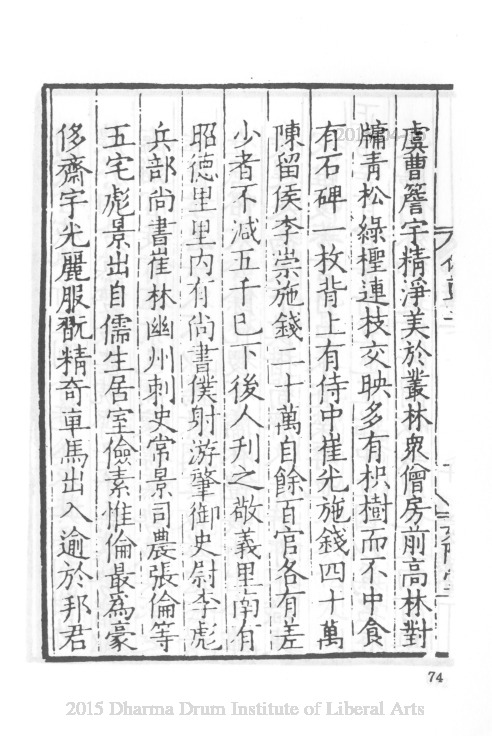 虞曹簷宇精淨美於叢林衆僧房前高林對
牖青松綠檉連枝交映多有枳樹而不中食
有石碑一枚背上有侍中崔光施錢四十萬
陳留侯李崇施錢二十萬自餘百官各有差
少者不減五千已下後人刋之敬義里南有
昭德里里内有尚書僕射游肇御史尉李彪
兵部尚書崔林幽州刺史常景司農張倫等
五宅彪景出自儒生居室儉素惟倫最爲豪
侈齋宇光麗服翫精奇車馬出入逾於邦君
74
2015 Dharma Drum Institute of Liberal Arts